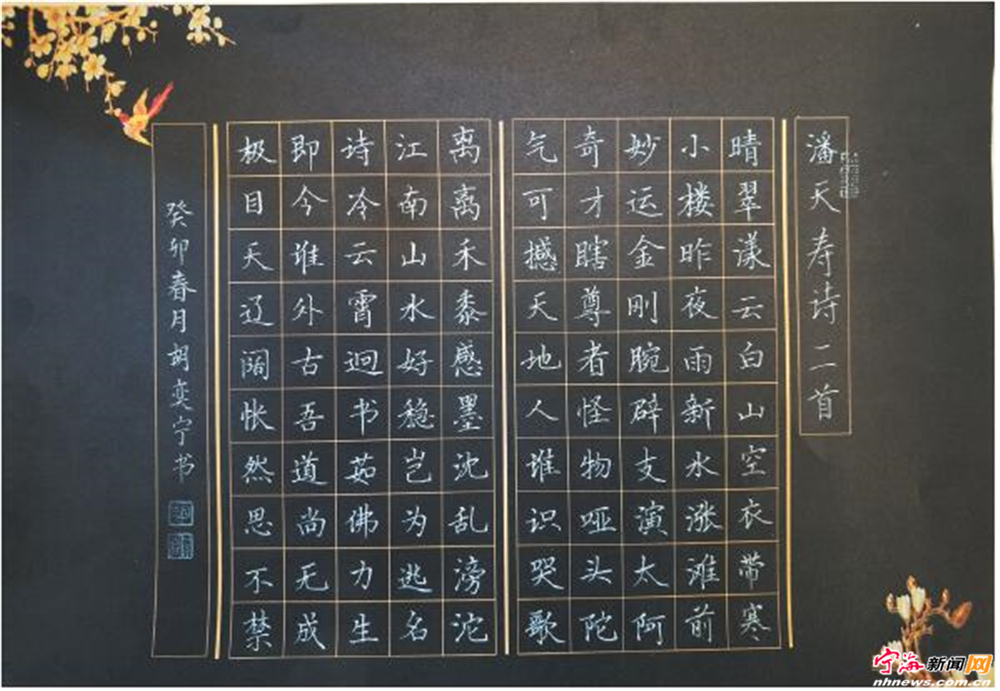 潘天寿诗二首
晴翠漾云白山空衣带寒
小楼昨夜雨新水涨滩前
妙运金刚腕辟支演太阿
奇才瞎尊者怪物哑头陀
气可撼天地人谁识哭歌
离离禾黍感墨沈乱滂沱
江南山水好稳岂为逃名
诗冷云霄迥书茹佛力生
即今谁外古吾道尚无成
极目天辽阔怅然思不禁
癸卯春月胡奕宁书
宁海新闻网
nhnews.com.cn